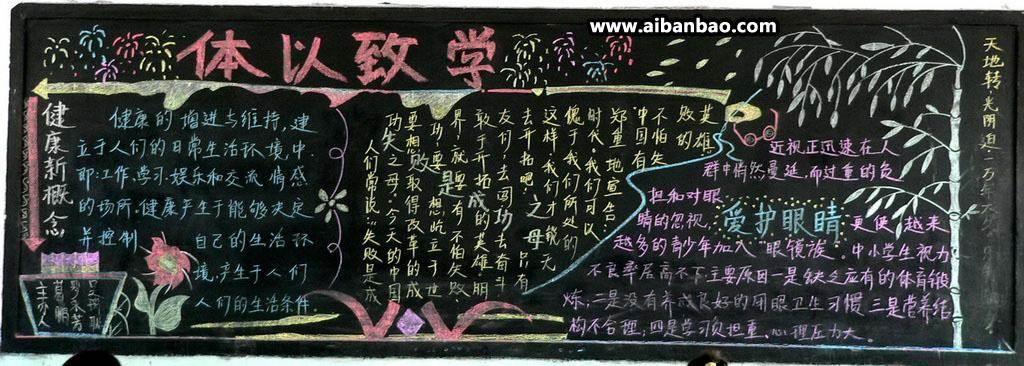 www.aibanbao.com
体以致学
健康新概念
健康的增进与维持,建
立于人们的日常生活环境,中.
即:工作,学习.娱乐和交流情感
的场所.健康产生于能够决定
并控制 自己的生活环
境,产生于人们
人们的生活条件.
失败是成功之母
英雄
败的
不怕失
中国有
郑重地宣告
时代,我们可以
傻于我们所处的
这样,我们才能无
去开拓吧!只有
友们,去闯,去奋斗
敢于开拓的英雄.朋
界,就要有不怕失败.
功,要想屹立于世
要想取得改革的成
功之母.今天的中国
人们常说:"失败是成
爱护眼睛
近视正迅速在人
群中俏然蔓延,而过重的负
担和对眼
睛的忽视, 更使 越来
越多的青少年加入 眼镜族. 中小学生视力
不良率居高不下主要原因一是缺乏应有的体育锻
炼,二是没有养成良好的用眼卫生习惯 三是营养结
构不合理,四是学习负担重、心理压力大。
天地转,光阴迫,一万年太久
主办人